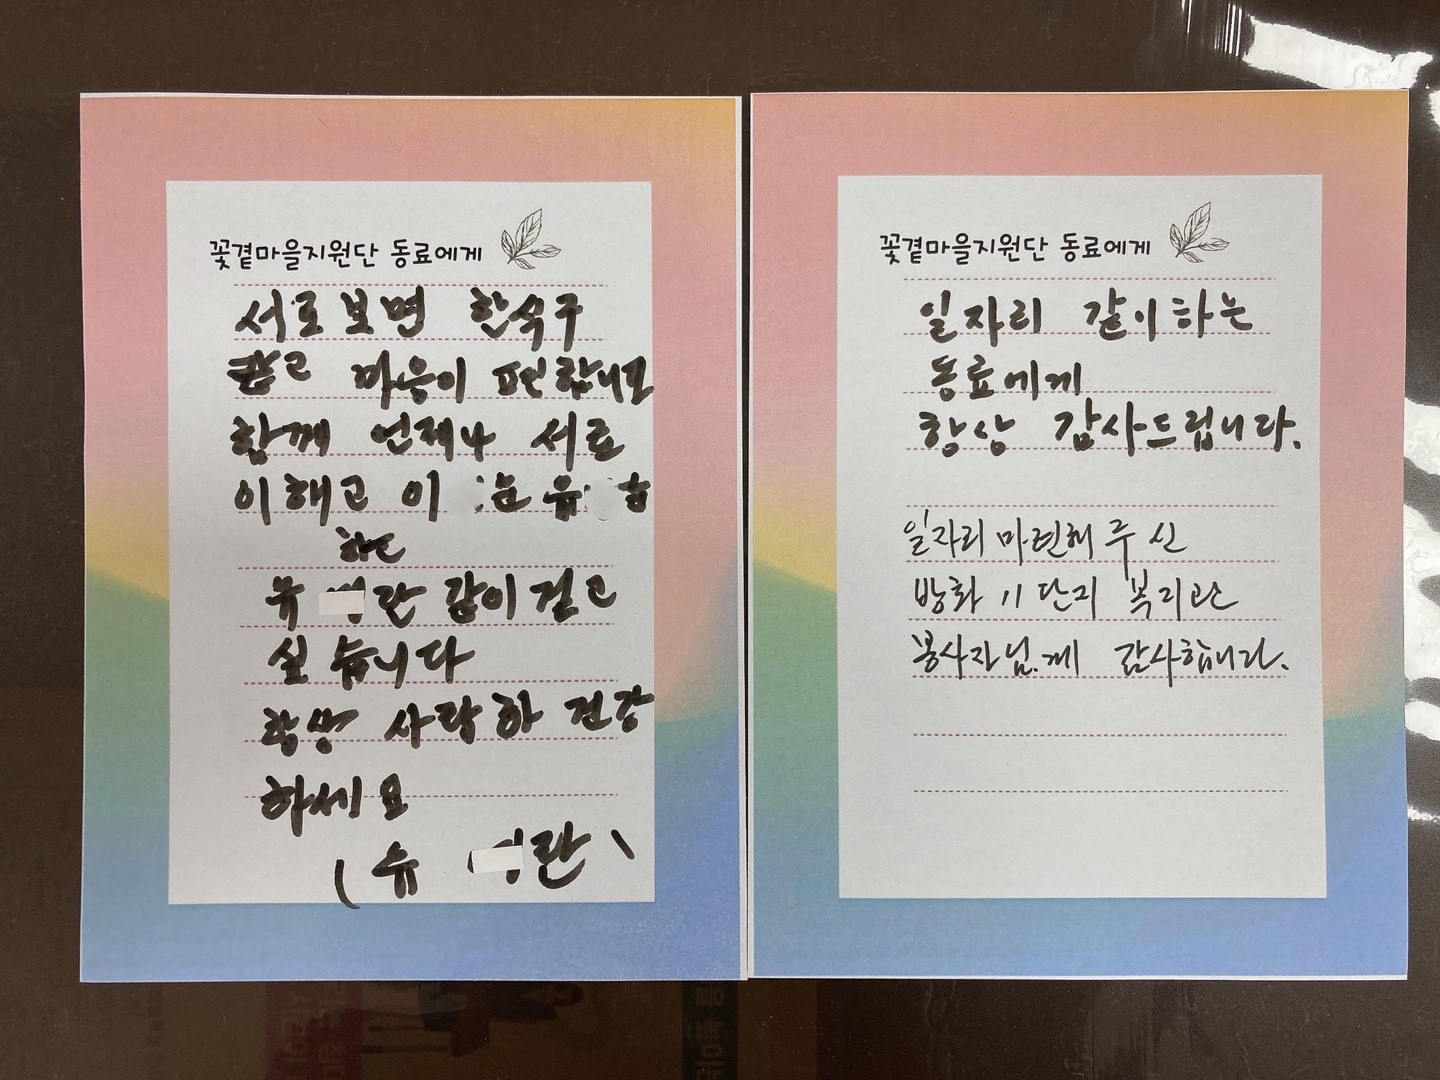 꽃곁마을지원단 동료에게
서로보면 한식구
같고 마음이 편합니다
함께 언제나 서로
이해고 이 순유
하는
유 란 같이 걷고
싶습니다
항상 사랑하 건강
하세요
(유 란)
꽃곁마을지원단 동료에게
일자리 같이하는
동료에게
항상 감사드립니다.
일자리 마련해 주신
방화 11 단지 복지관
봉사자님.께 감사합니다.